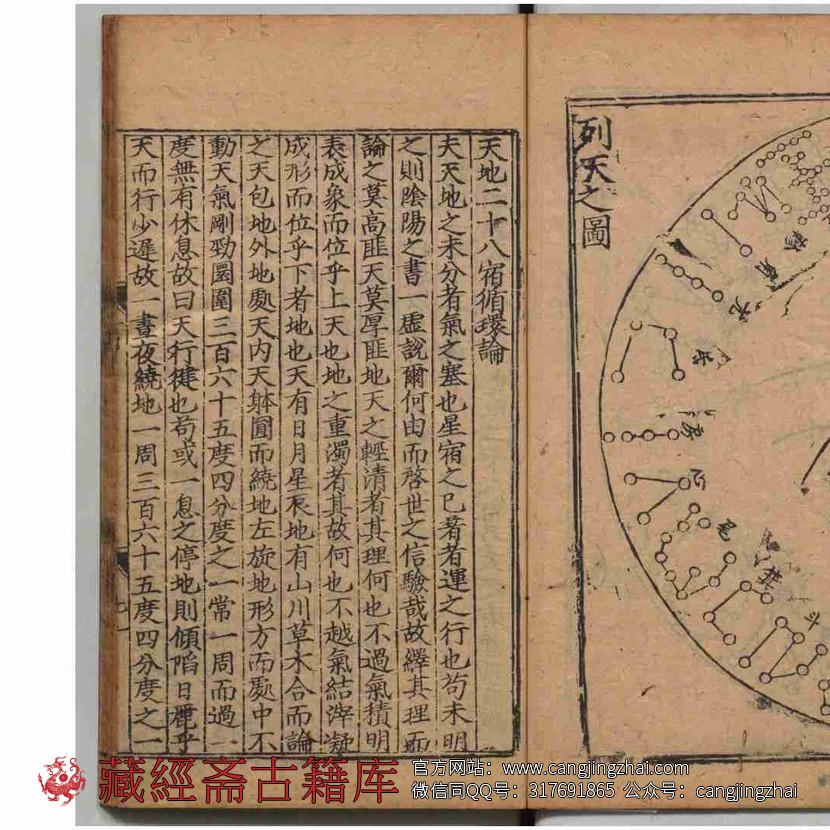 列天之圖
軫
翼
亢
氐
房
心
尾
箕
斗
天地二十八宿循環論
夫天地之未分者氣之塞也星宿之已著者運之行也苟未明
之則陰陽之書一虛說爾何由而啓世之信驗哉故繹其理而
論之莫高匪天莫厚匪地天之輕清者其理何也不過氣積明
表成象而位乎上天也地之重濁者其故何也不越氣結滓凝
成形而位乎下者地也天有日月星辰地有山川草木合而論
之天包地外地處天內天躰圓而繞地左旋地形方而處中不
動天氣剛勁圜圍三百六十五度四分度之一常一周而過一
度無有休息故曰天行健也苟或一息之停地則傾陷日麗乎
天而行少遲故一晝夜繞地一周三百六十五度四分度之一
藏經斋古籍库
官方网站：www.cangjingzhai.com
微信同QQ号：317691865 公众号：cangjingzhai